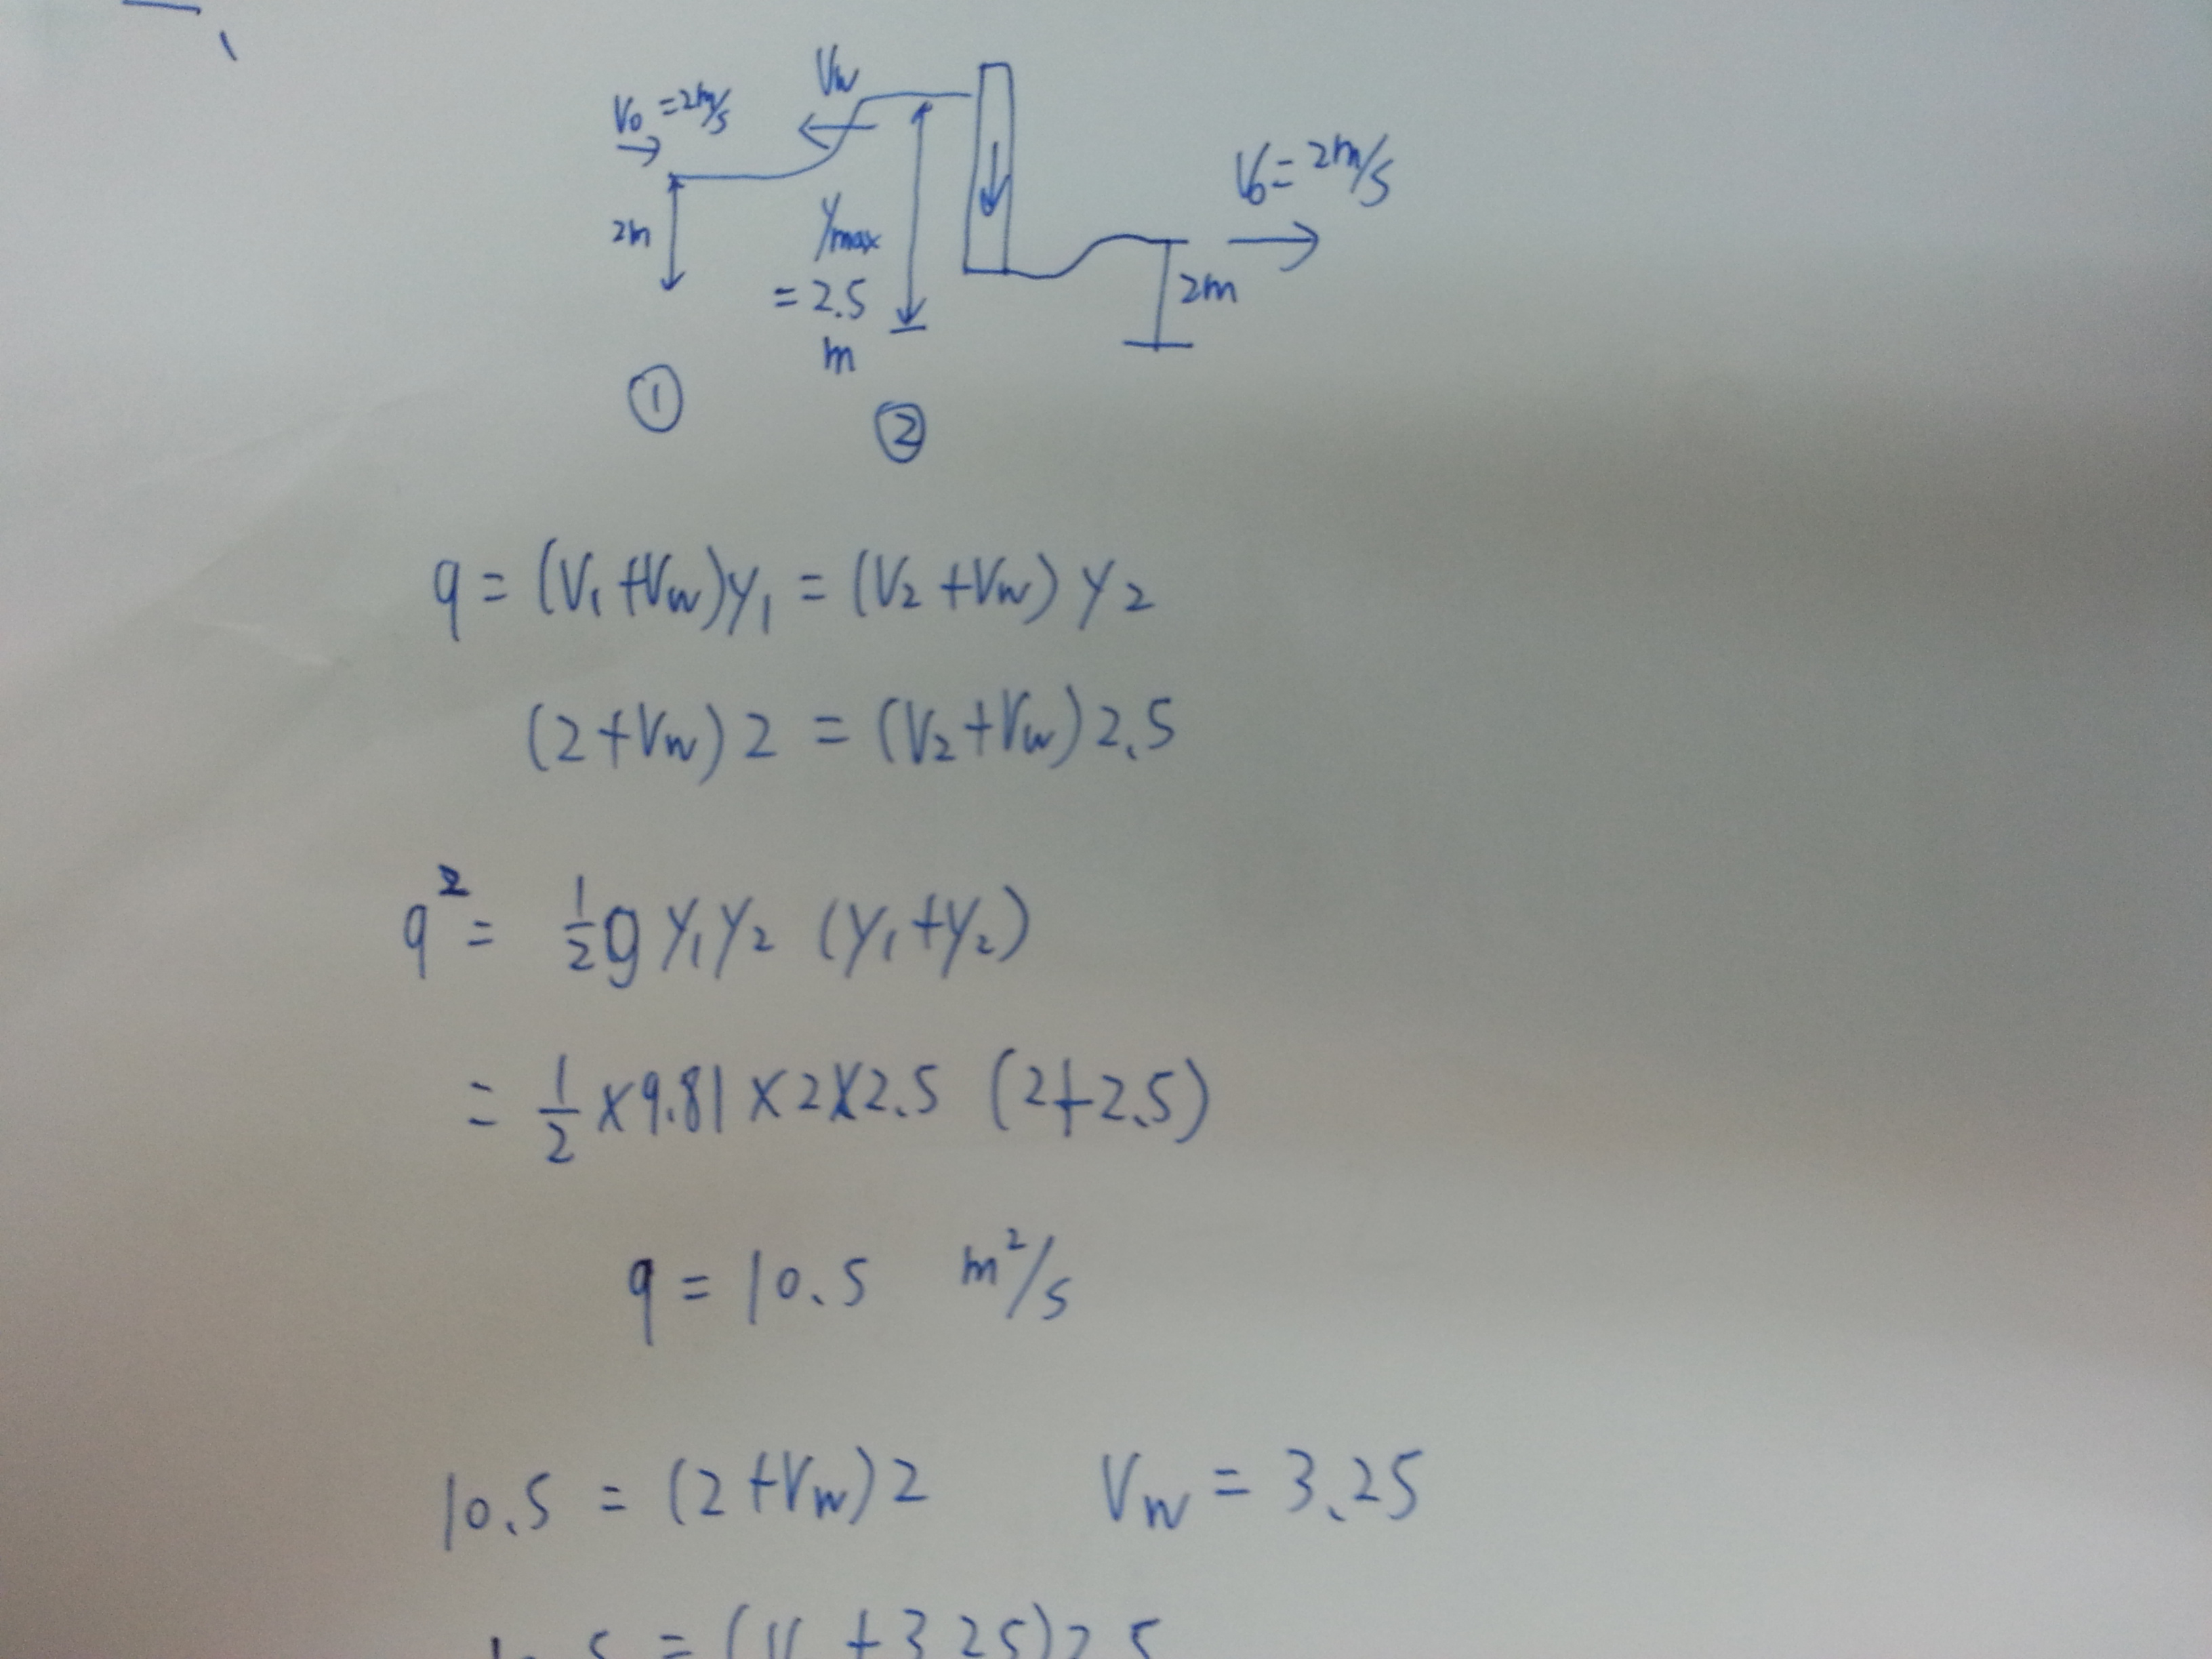 V₀ = 2m/s
Vw
V₀ = 2m/s
2m
ymax
= 2.5
m
2m
①
②
q = (V₁ + Vw)y₁ = (V₂ + Vw) y₂
(2 + Vw) 2 = (V₂ + Vw) 2.5
q² = ½ g y₁ y₂ (y₁ + y₂)
= ½ × 9.81 × 2 × 2.5 (2 + 2.5)
q = 10.5 m²/s
10.5 = (2 + Vw) 2 Vw = 3.25
5 = (V + 3.25) 2.5